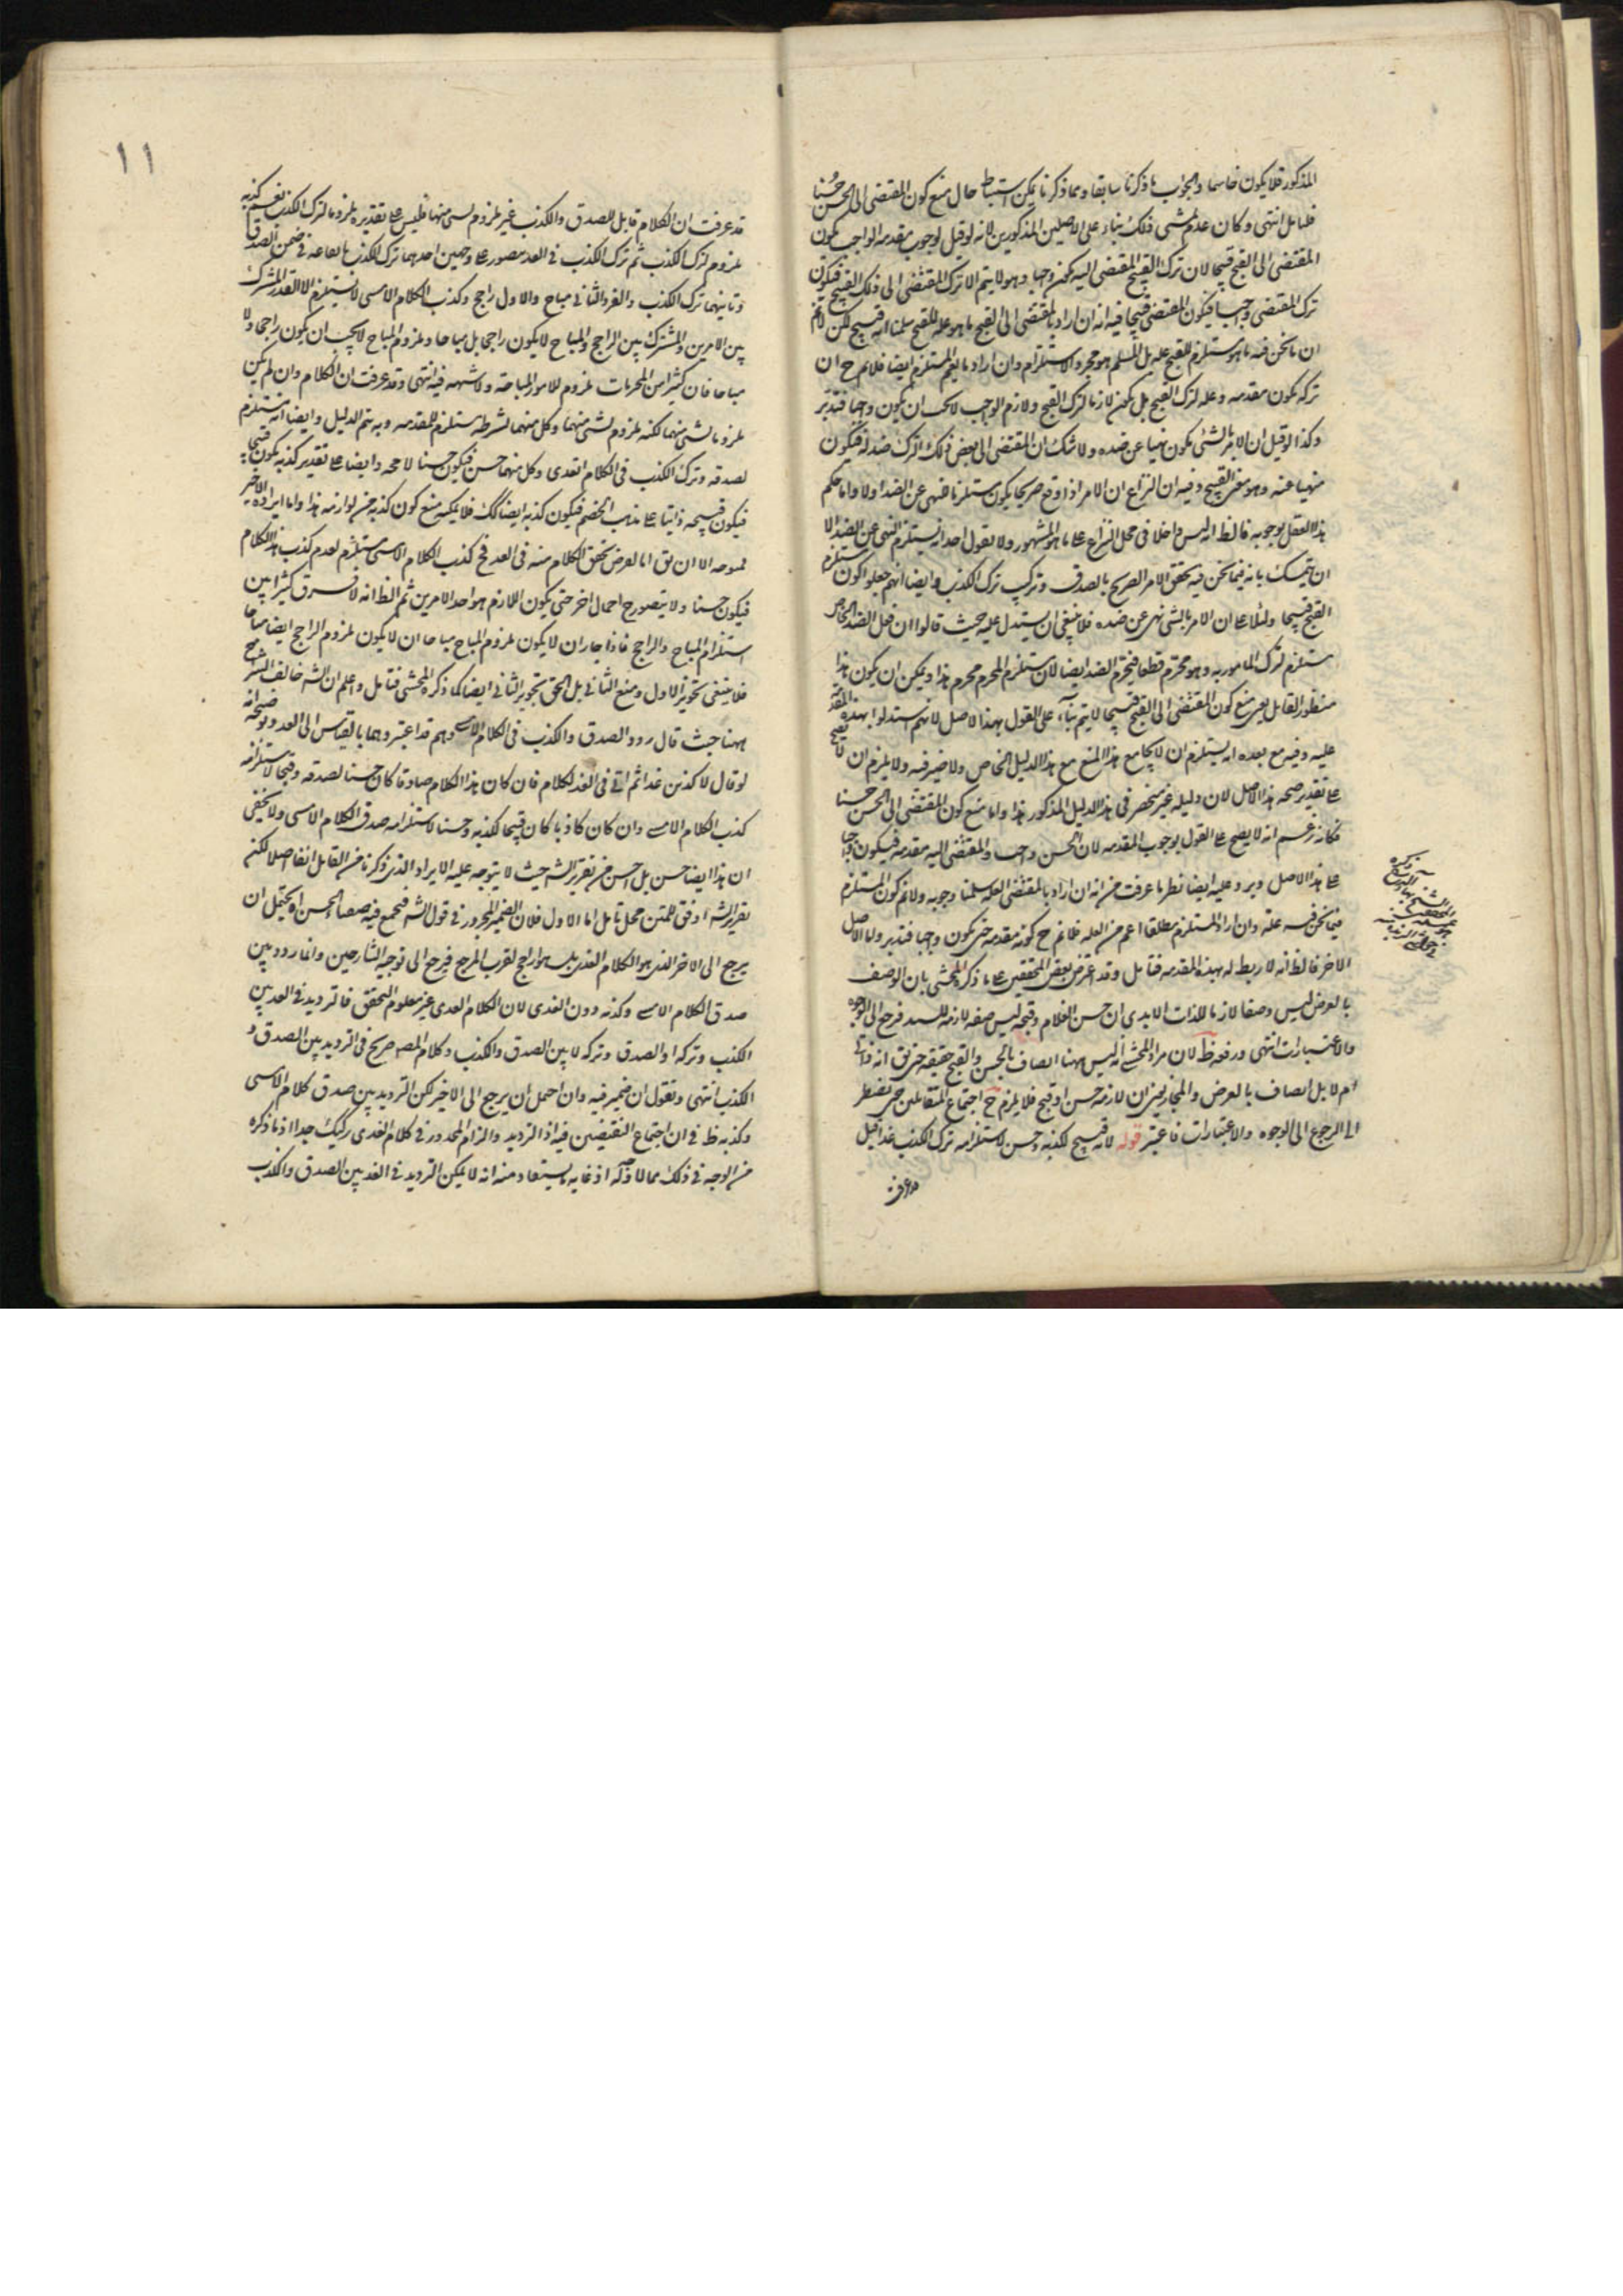 المذكور فلا يكون حاسما والجواب ما ذكرنا سابقا ومما ذكرنا يمكن استنباط حال منع كون المقتضى الى الحسن حسنا
فتامل انتهى وكان عدم تمشى ذلك بناء على الاصلين المذكورين لانه لو قيل لوجوب مقدمة الواجب يكون
المقتضى الى القبيح قبيحا لان ترك القبيح المقتضى اليه يكون واجبا وهو لا يتم الا بترك المقتضى الى ذلك القبيح فيكون
ترك المقتضى واجبا فيكون المقتضى قبيحا فيه انه ان اراد بالمقتضى الى القبيح ما هو علة للقبيح سلمنا انه قبيح لكن لا نم
ان ما نحن فيه ما هو مستلزم للقبيح علة بل المسلم هو مجرد الاستلزام وان اراد ما يعم المستلزم ايضا فلا نم ح ان
تركه يكون مقدمة وعلة لترك القبيح بل يكون لازما لترك القبيح ولازم الواجب لا يجب ان يكون واجبا فتدبر
وكذا لو قيل ان الامر بالشئ يكون نهيا عن ضده ولا شك ان المقتضى الى بعض ذلك الترك ضد له فيكون
منهيا عنه وهو معنى القبيح وفيه ان النزاع ان الامر اذا وقع صريحا يكون مستلزما للنهى عن الضد اولا واما حكم
هذا العقل بوجوبه فالظ انه ليس داخلا فى محل النزاع على ما هو المشهور ولا يقول احد انه يستلزم النهى عن الضد الا
ان يتمسك بانه فيما نحن فيه تحقق الامر الصريح بالصدق وترك الكذب وايضا انهم جعلوا كون مستلزم
القبيح قبيحا دليلا على ان الامر بالشئ نهى عن ضده فلا ينبغى ان يستدل عليه حيث قالوا ان فعل الضد الخاص
مستلزم لترك المامور به وهو محرم قطعا فيحرم الضد ايضا لان مستلزم المحرم محرم هذا ويمكن ان يكون هذا
منظور القائل يعنى منع كون المقتضى الى القبيح قبيحا لا يتم بناء على القول بهذا الاصل لانهم استدلوا بهذه المقدمة
عليه وفيه مع بعده انه يستلزم ان لا يجامع هذا المنع مع هذا الدليل الخاص ولا ضير فيه ولا يلزم ان لا يصح
على تقدير صحة هذا الاصل لان دليله غير منحصر فى هذا الدليل المذكور هذا واما منع كون المقتضى الى الحسن حسنا
فكانه زعم انه لا يصح على القول بوجوب المقدمة لان الحسن واجب والمقتضى اليه مقدمة فيكون واجبا
على هذا الاصل ويرد عليه ايضا نظر ما عرفت من انه ان اراد بالمقتضى العلة سلمنا وجوبه ولا نم كون المستلزم
فيما نحن فيه علة وان اراد المستلزم مطلقا اعم من العلة فلا نم ح كونه مقدمة حتى يكون واجبا فتدبر واما الاصل
الاخر فالظ انه لا ربط له بهذه المقدمة فتامل وقد اعترض بعض المحققين على ما ذكره المحشى بان الوصف
بالعرض ليس وصفا لازما للذات الا يرى ان حسن الغلام وقبحه ليس صفة لازمة للسيد فرجع الى الوجوه
والاعتبارات انتهى ودفعه ظ لان مراد المحشى انه ليس ههنا اتصاف بالحسن والقبح حقيقة حتى يق انه ذاتى
ام لا بل اتصاف بالعرض والمجاز يعنى ان لازمه حسن او قبيح فلا يلزم ح اجتماع المتقابلين حتى يضطر
الى الرجوع الى الوجوه والاعتبارات فاعتبر قوله لانه قبيح لكذبه وحسن لاستلزامه ترك الكذب غدا قيل
قد عرفت
١١
قد عرفت ان الكلام قابل للصدق والكذب غير ملزوم لشئ منهما فليس على تقديره ملزوما لترك الكذب نعم كذبه
ملزوم لترك الكذب ثم ترك الكذب فى الغد متصور على وجهين احدهما ترك الكذب بايقاعه فى ضمن الصدق
وثانيهما ترك الكذب والفرد الثانى مباح والاول راجح وكذب الكلام الامسى لا يستلزم الا القدر المشترك
بين الامرين والمشترك بين الراجح والمباح لا يكون راجحا بل مباحا وملزوم المباح لا يجب ان يكون راجحا ولا
مباحا فان كثيرا من المحرمات ملزوم للامور المباحة ولا شبهة فيه انتهى وقد عرفت ان الكلام وان لم يكن
ملزوما لشئ منهما لكنه ملزوم لشئ منهما وكل منهما لشرطه مستلزم للمقدمة وبه يتم الدليل وايضا انه مستلزم
لصدقه وترك الكذب فى الكلام الغدى وكل منهما حسن فيكون حسنا لا محة وايضا على تقدير كذبه يكون قبيحا
فيكون قبيحة ذاتيا على مذهب الخصم فيكون كذبه ايضا كك فلا يمكنه منع كون كذبه من لوازمه هذا واما ايراده الاخير
الا ان يق اما لعرض تحقق الكلام منه فى الغد فح كذب الكلام الامسى مستلزم لعدم كذب هذا الكلام
فيكون حسنا ولا يتصور ح احتمال اخر حتى يكون اللازم هو احد الامرين ثم الظ انه لا فرق كثيرا بين
استلزام المباح والراجح فاذا جاز ان لا يكون ملزوم المباح مباحا ان لا يكون ملزوم الراجح ايضا مباحا
فلا ينبغى تجويز الاول ومنع الثانى بل الحق تجويز الثانى ايضا كما ذكره المحشى فتامل واعلم ان الشه خالف الشرح
ههنا حيث قال ردد الصدق والكذب فى الكلام الامسى وهم قد اعتبروهما بالقياس الى الغد وتوضيحه انه
لو قال لاكذبن غدا ثم اتى فى الغد لكلام فان كان هذا الكلام صادقا كان حسنا لصدقه وقبيحا لاستلزامه
كذب الكلام الامسى وان كان كاذبا كان قبيحا لكذبه وحسنا لاستلزامه صدق الكلام الامسى ولا يخفى
ان هذا ايضا حسن بل احسن من تقرير الشه حيث لا يتوجه عليه الايراد الذى ذكرنا من القائل انفا اصلا لكنه
تقرير الشه اوفق للمتن محل تامل اما الاول فلان الضمير المجرور فى قول الشه فيجمع فيه صفتا الحسن او يحتمل ان
يرجع الى الاخر الذى هو الكلام الغدى بل هو راجح لقرب المرجع فيرجع الى توجيه الشارحين وانما ردد بين
صدق الكلام الامسى وكذبه دون الغدى لان الكلام الغدى غير معلوم التحقق فالترديد فى الغد بين
الكذب وتركه او الصدق وتركه لا بين الصدق والكذب وكلام المصه صريح فى الترديد بين الصدق و
الكذب انتهى ونقول ان ضمير فيه وان احتمل ان يرجع الى الاخير لكن الترديد بين صدق كلام الامسى
وكذبه ظ فى ان اجتماع النقيضين فيه اذ الترديد والزام المحذور فى كلام الغدى ركيك جدا اذ ما ذكره
من الوجه فى ذلك مما لا وجه له اذ غاية ما يستفاد منه انه لا يمكن الترديد فى الغد بين الصدق والكذب